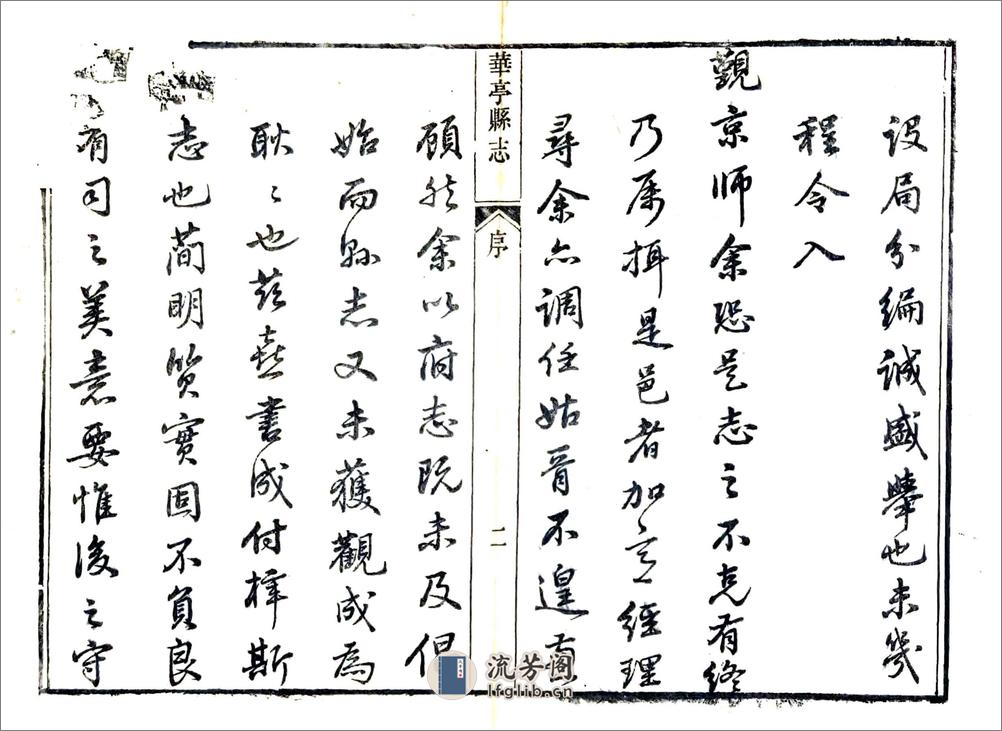 设局分編誠盛舉也未幾
程令入
覲京師余恐是志之不克有終
乃属攝是邑者加意經理
尋余亦調任姑胥不遑兼
華亭縣志 序 二
顧然余以府志既未及
始而縣志又未獲觀成為
耿〻也茲喜書成付梓斯
志也簡明質實固不負良
有司之美意要惟後之守
流芳阁
lfglib.cn